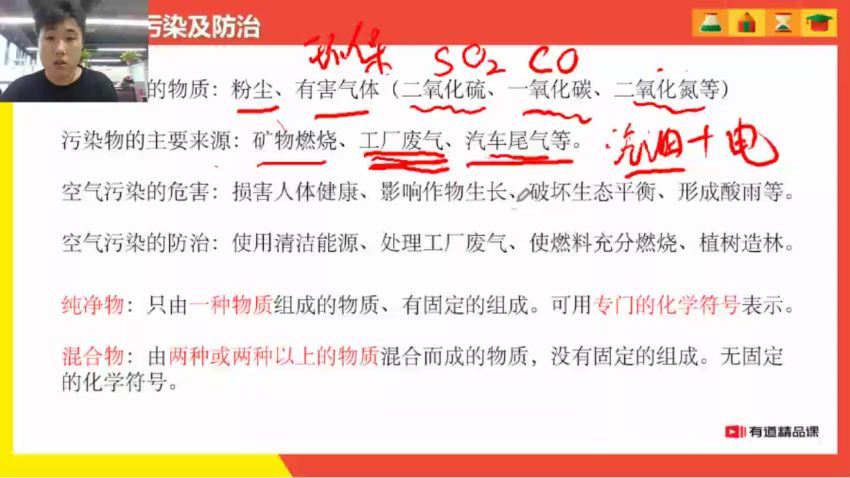 污染及防治
环保 SO2 CO
的物质：粉尘、有害气体（二氧化硫、一氧化碳、二氧化氮等）
污染物的主要来源：矿物燃烧、工厂废气、汽车尾气等。 汽油+电
空气污染的危害：损害人体健康、影响作物生长、破坏生态平衡、形成酸雨等。
空气污染的防治：使用清洁能源、处理工厂废气、使燃料充分燃烧、植树造林。
纯净物：只由一种物质组成的物质、有固定的组成。可用专门的化学符号表示。
混合物：由两种或两种以上的物质混合而成的物质，没有固定的组成。无固定
的化学符号。
有道精品课